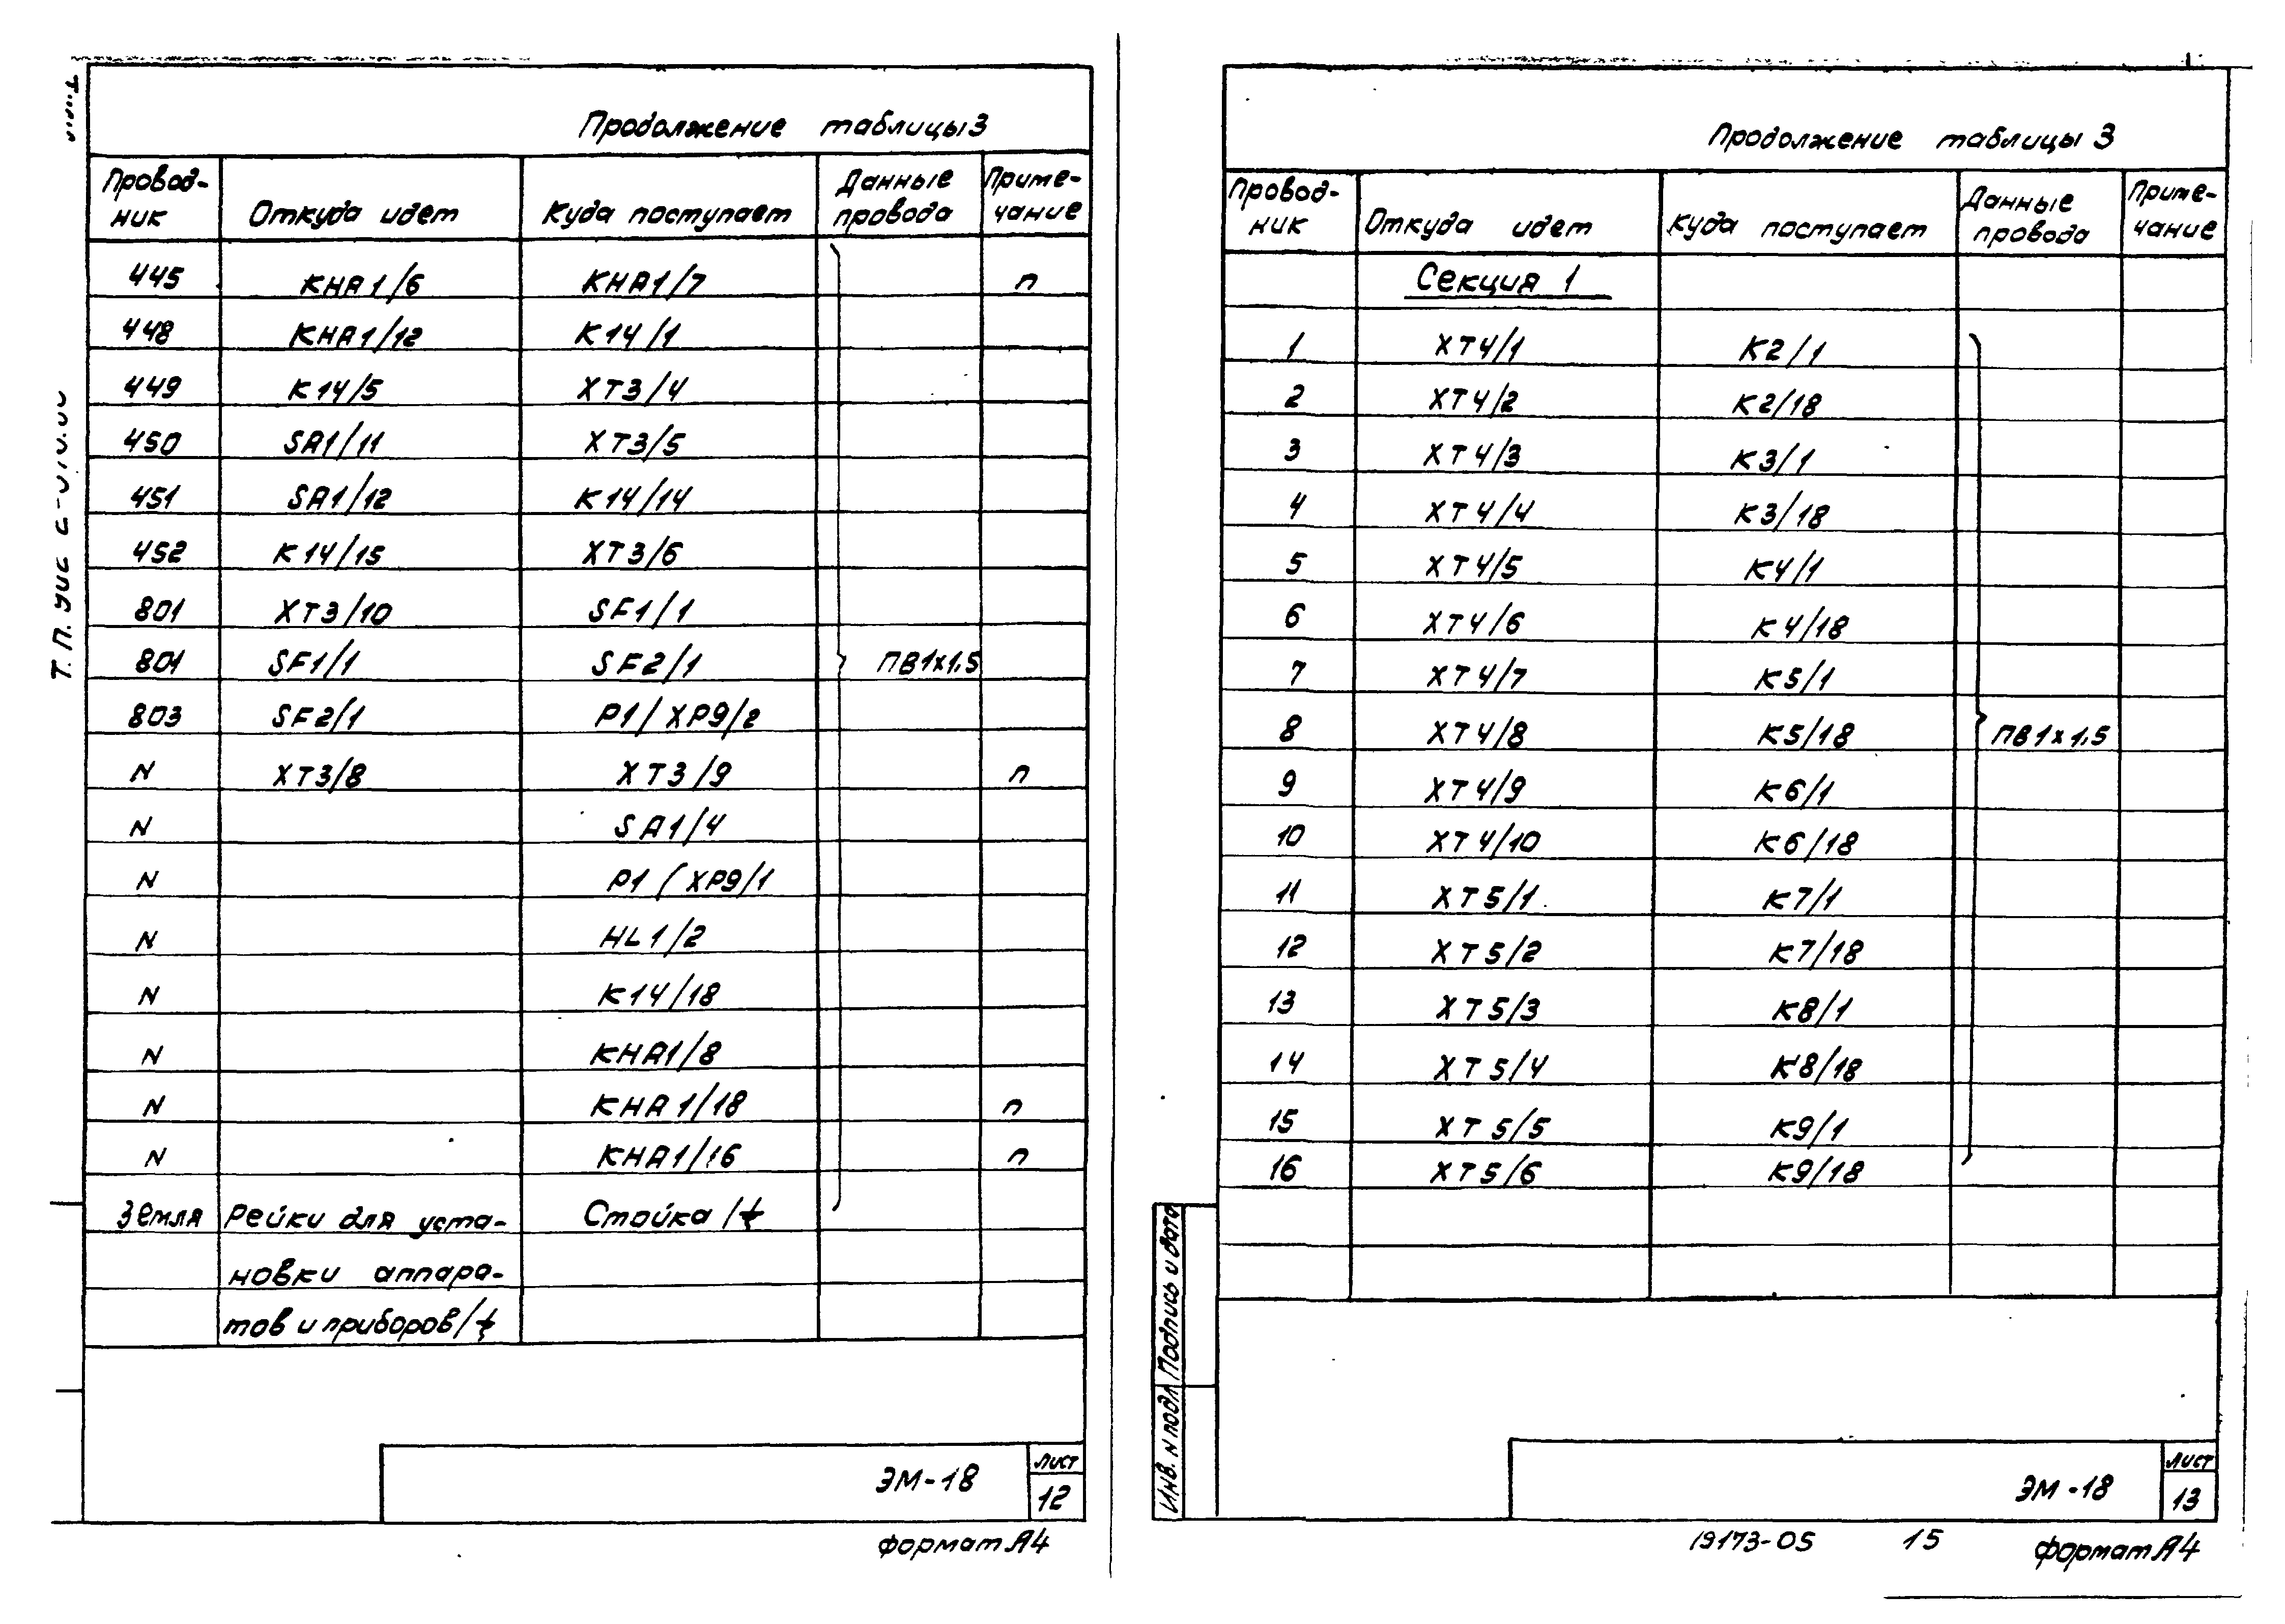 Продолжение таблицы 3
Провод-
ник
Откуда идет
Куда поступает
Данные
провода
Приме-
чание
445 КНА1/6 КНА1/7 п
448 КНА1/12 К14/1
449 К14/5 ХТ3/4
450 SA1/11 ХТ3/5
451 SA1/12 К14/14
452 К14/15 ХТ3/6
801 ХТ3/10 SF1/1
801 SF1/1 SF2/1 ПВ1х1,5
803 SF2/1 Р1/ХР9/2
N ХТ3/8 ХТ3/9 п
N SA1/4
N Р1/ХР9/1
N HL1/2
N К14/18
N КНА1/8
N КНА1/18 п
N КНА1/16 п
Земля Рейки для уста- Стойка/⏚
новки аппара-
тов и приборов/⏚
ЭМ-18
Лист
12
формат А4
Т.П.
Продолжение таблицы 3
Провод-
ник
Откуда идет
Куда поступает
Данные
провода
Приме-
чание
Секция 1
1 ХТ4/1 К2/1
2 ХТ4/2 К2/18
3 ХТ4/3 К3/1
4 ХТ4/4 К3/18
5 ХТ4/5 К4/1
6 ХТ4/6 К4/18
7 ХТ4/7 К5/1
8 ХТ4/8 К5/18 ПВ1х1,5
9 ХТ4/9 К6/1
10 ХТ4/10 К6/18
11 ХТ5/1 К7/1
12 ХТ5/2 К7/18
13 ХТ5/3 К8/1
14 ХТ5/4 К8/18
15 ХТ5/5 К9/1
16 ХТ5/6 К9/18
Инв. N подл Подпись и дата
ЭМ-18
Лист
13
19173-05 15 формат А4